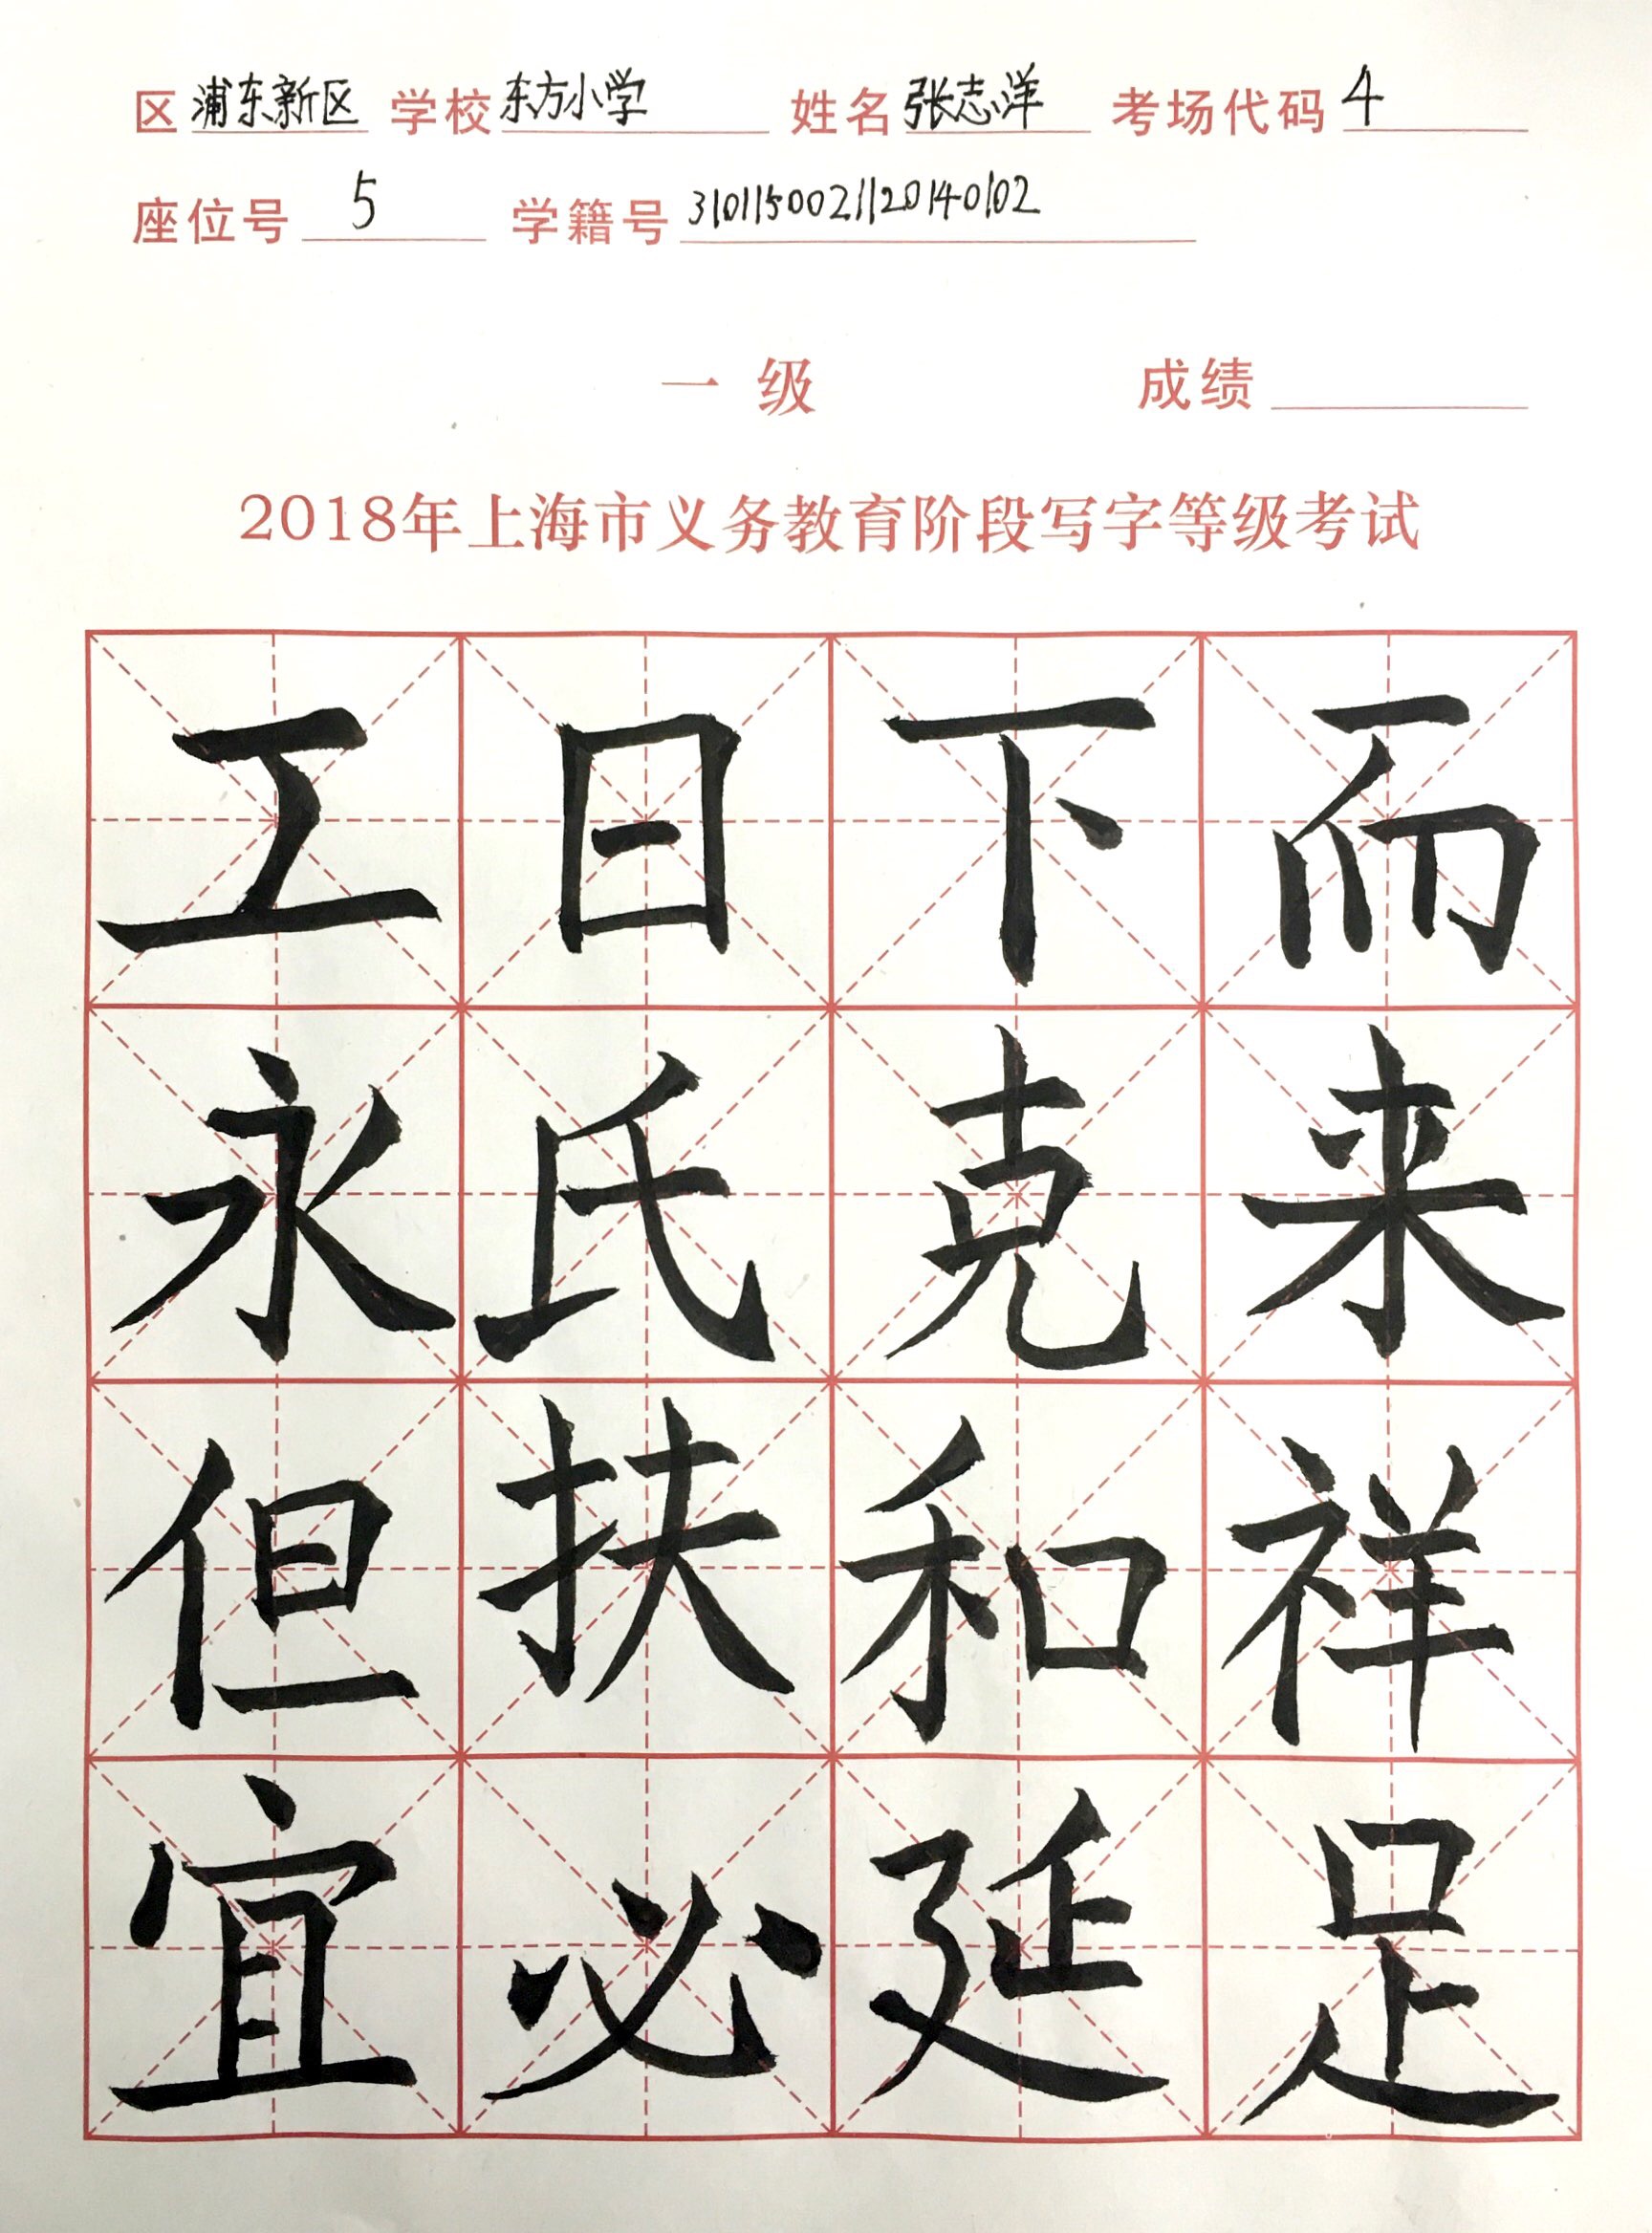 区 浦东新区 学校 东方小学 姓名 张志洋 考场代码 4
座位号 5 学籍号 3101150021120140102
一 级 成绩
2018年上海市义务教育阶段写字等级考试
工 日 下 而
永 氏 克 来
但 扶 和 祥
宜 必 延 足